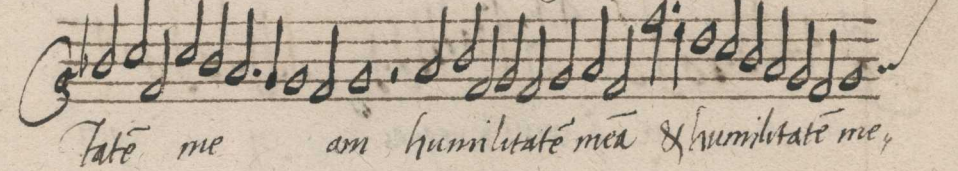 tatē me am humilitatē meā & humilitatē me„